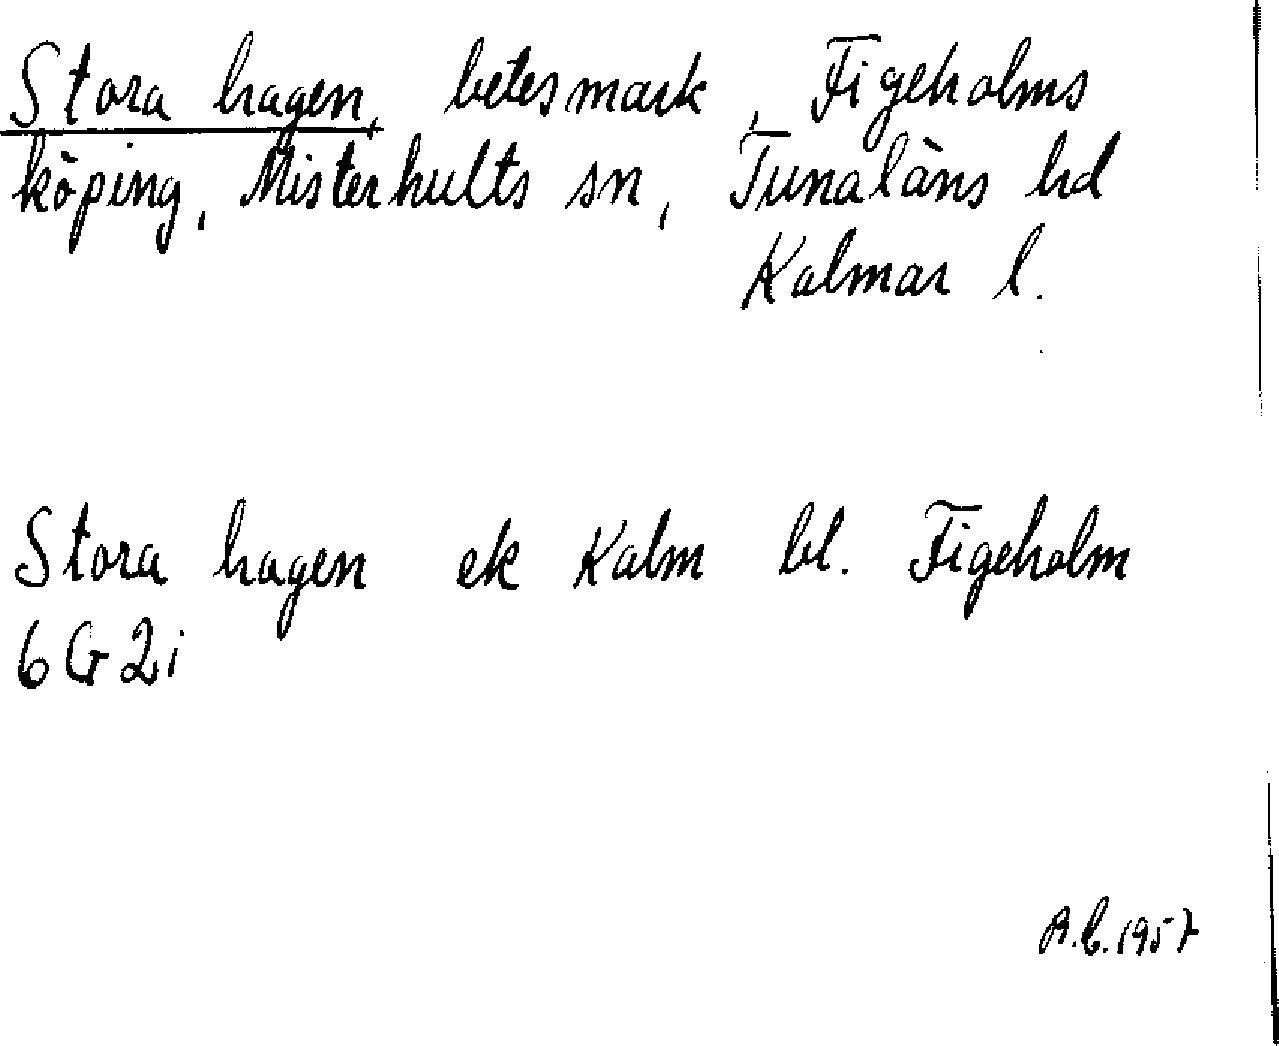 Stora hagen, betesmark, Figeholms
köping, Misterhults sn, Tunaläns hd
Kalmar l.
Stora hagen ek Kalm bl. Figeholm
6G2i
A.C. 1957